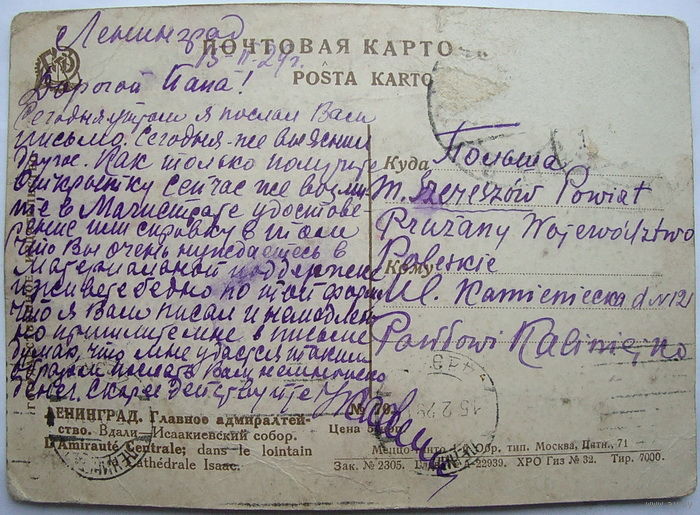 Ленинград
15-II-29г.
ПОЧТОВАЯ КАРТО
POSTA KARTO
Дорогой Папа!
Сегодня утром я послал Вам
письмо. Сегодня-же выяснил
другое. Как только получите
открытку сейчас же возьми-
те в Магистрате удостове-
рение или справку в том
что Вы очень нуждаетесь в
материальной поддержке
и живете бедно по той форме
что я Вам писал и немедлен-
но пришлите мне в письме
думаю, что мне удастся таким
образом послать Вам немножко
денег. Скорее действуйте
Куда
Польша
m. Szereszów Powiat
Prużany Województwo
Poleskie
Кому
Ul. Kamieniecka d N 12
ЛЕНИНГРАД. Главное адмиралтей-
ство. Вдали—Исаакиевский собор.
L'Amirauté Centrale; dans le lointain
Cathédrale Isaac.
Цена
15.2.29
Обр. тип. Москва, Пятн., 71
Зак. № 2305.
А-22939. ХРО Гиз № 32. Тир. 7000.